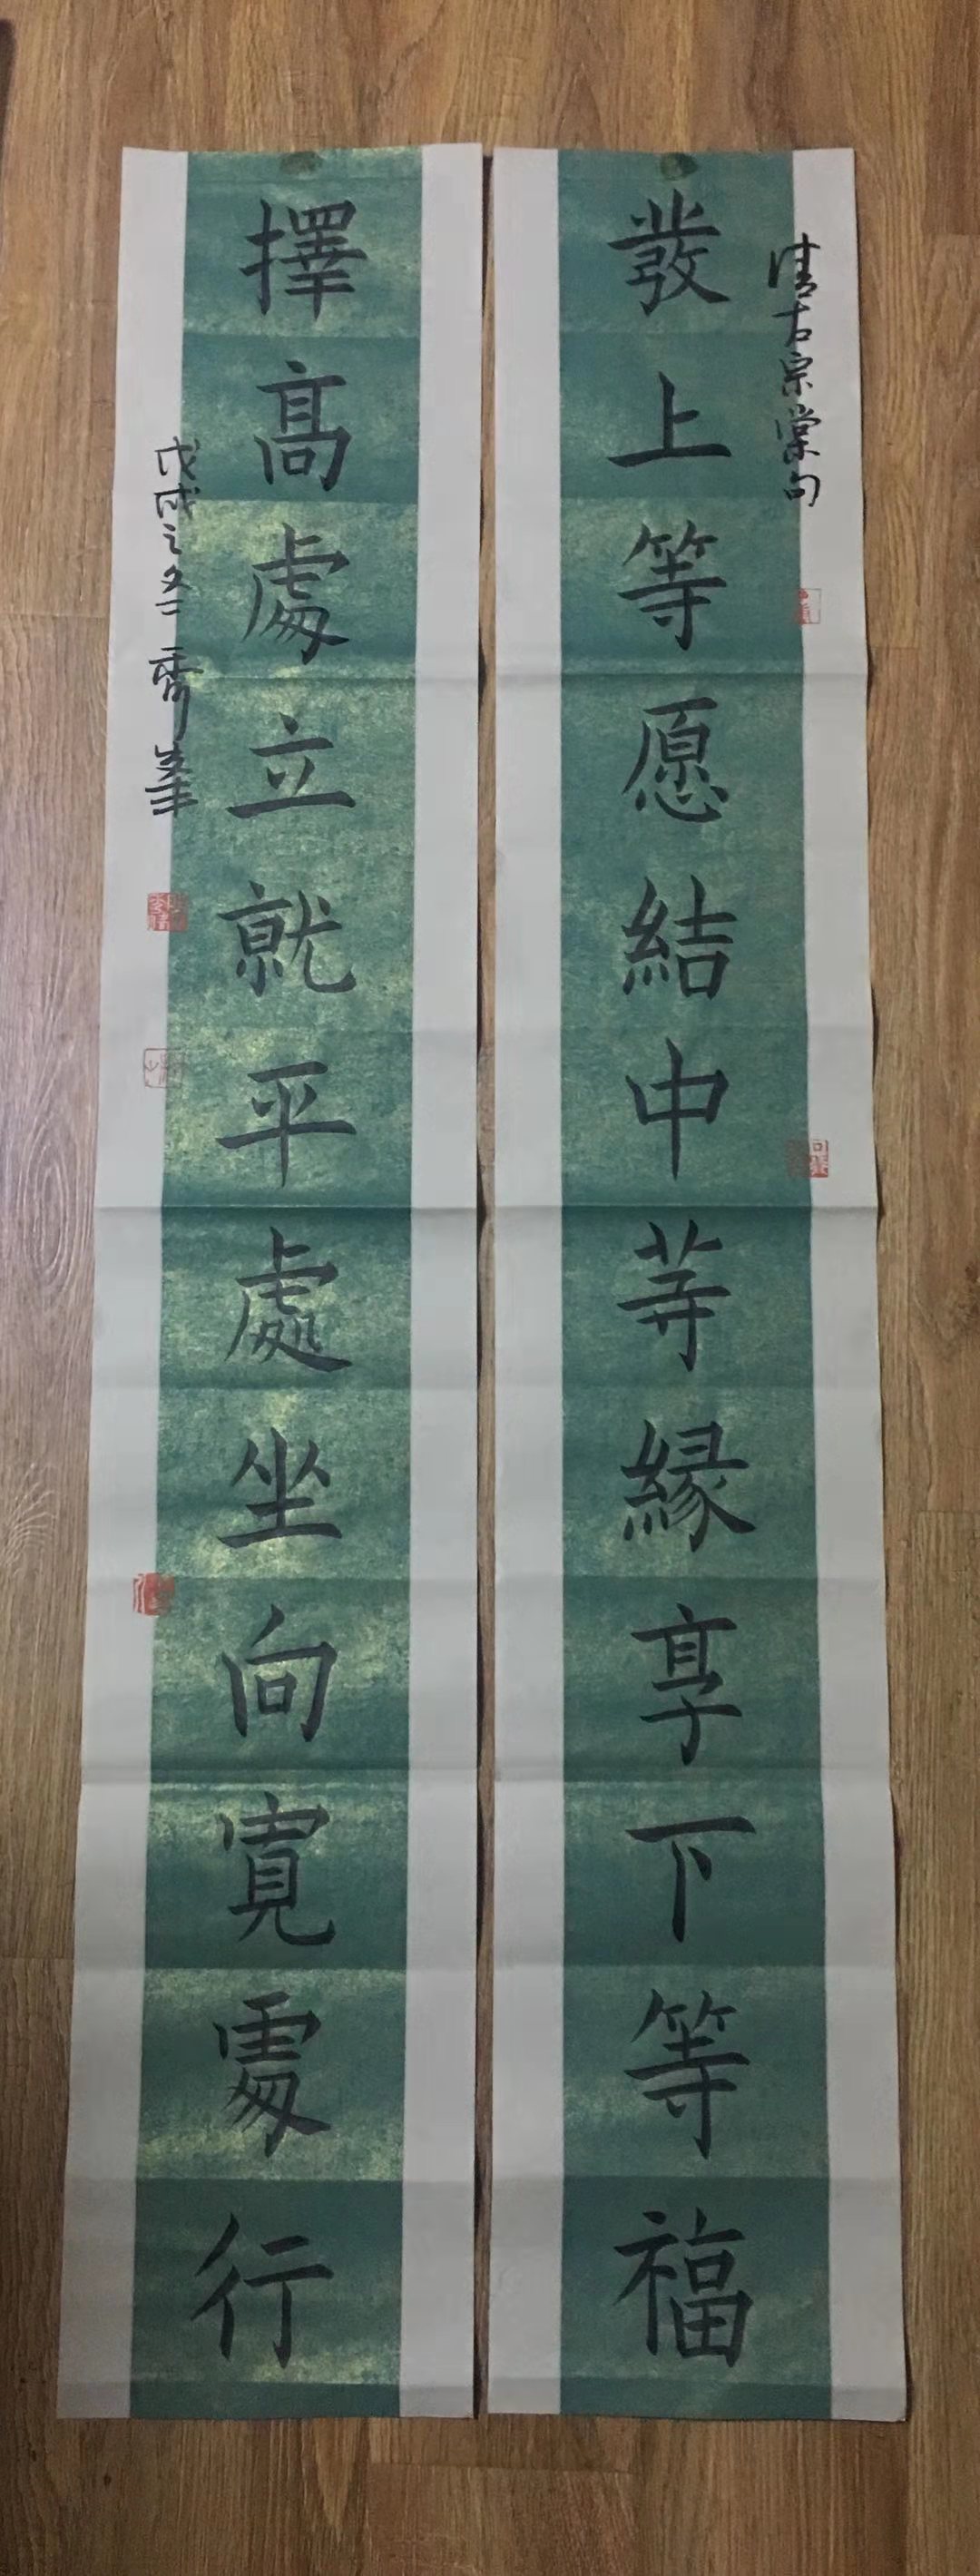 發上等愿結中等緣享下等福
清左宗棠句
擇高處立就平處坐向寬處行
戊戌之冬